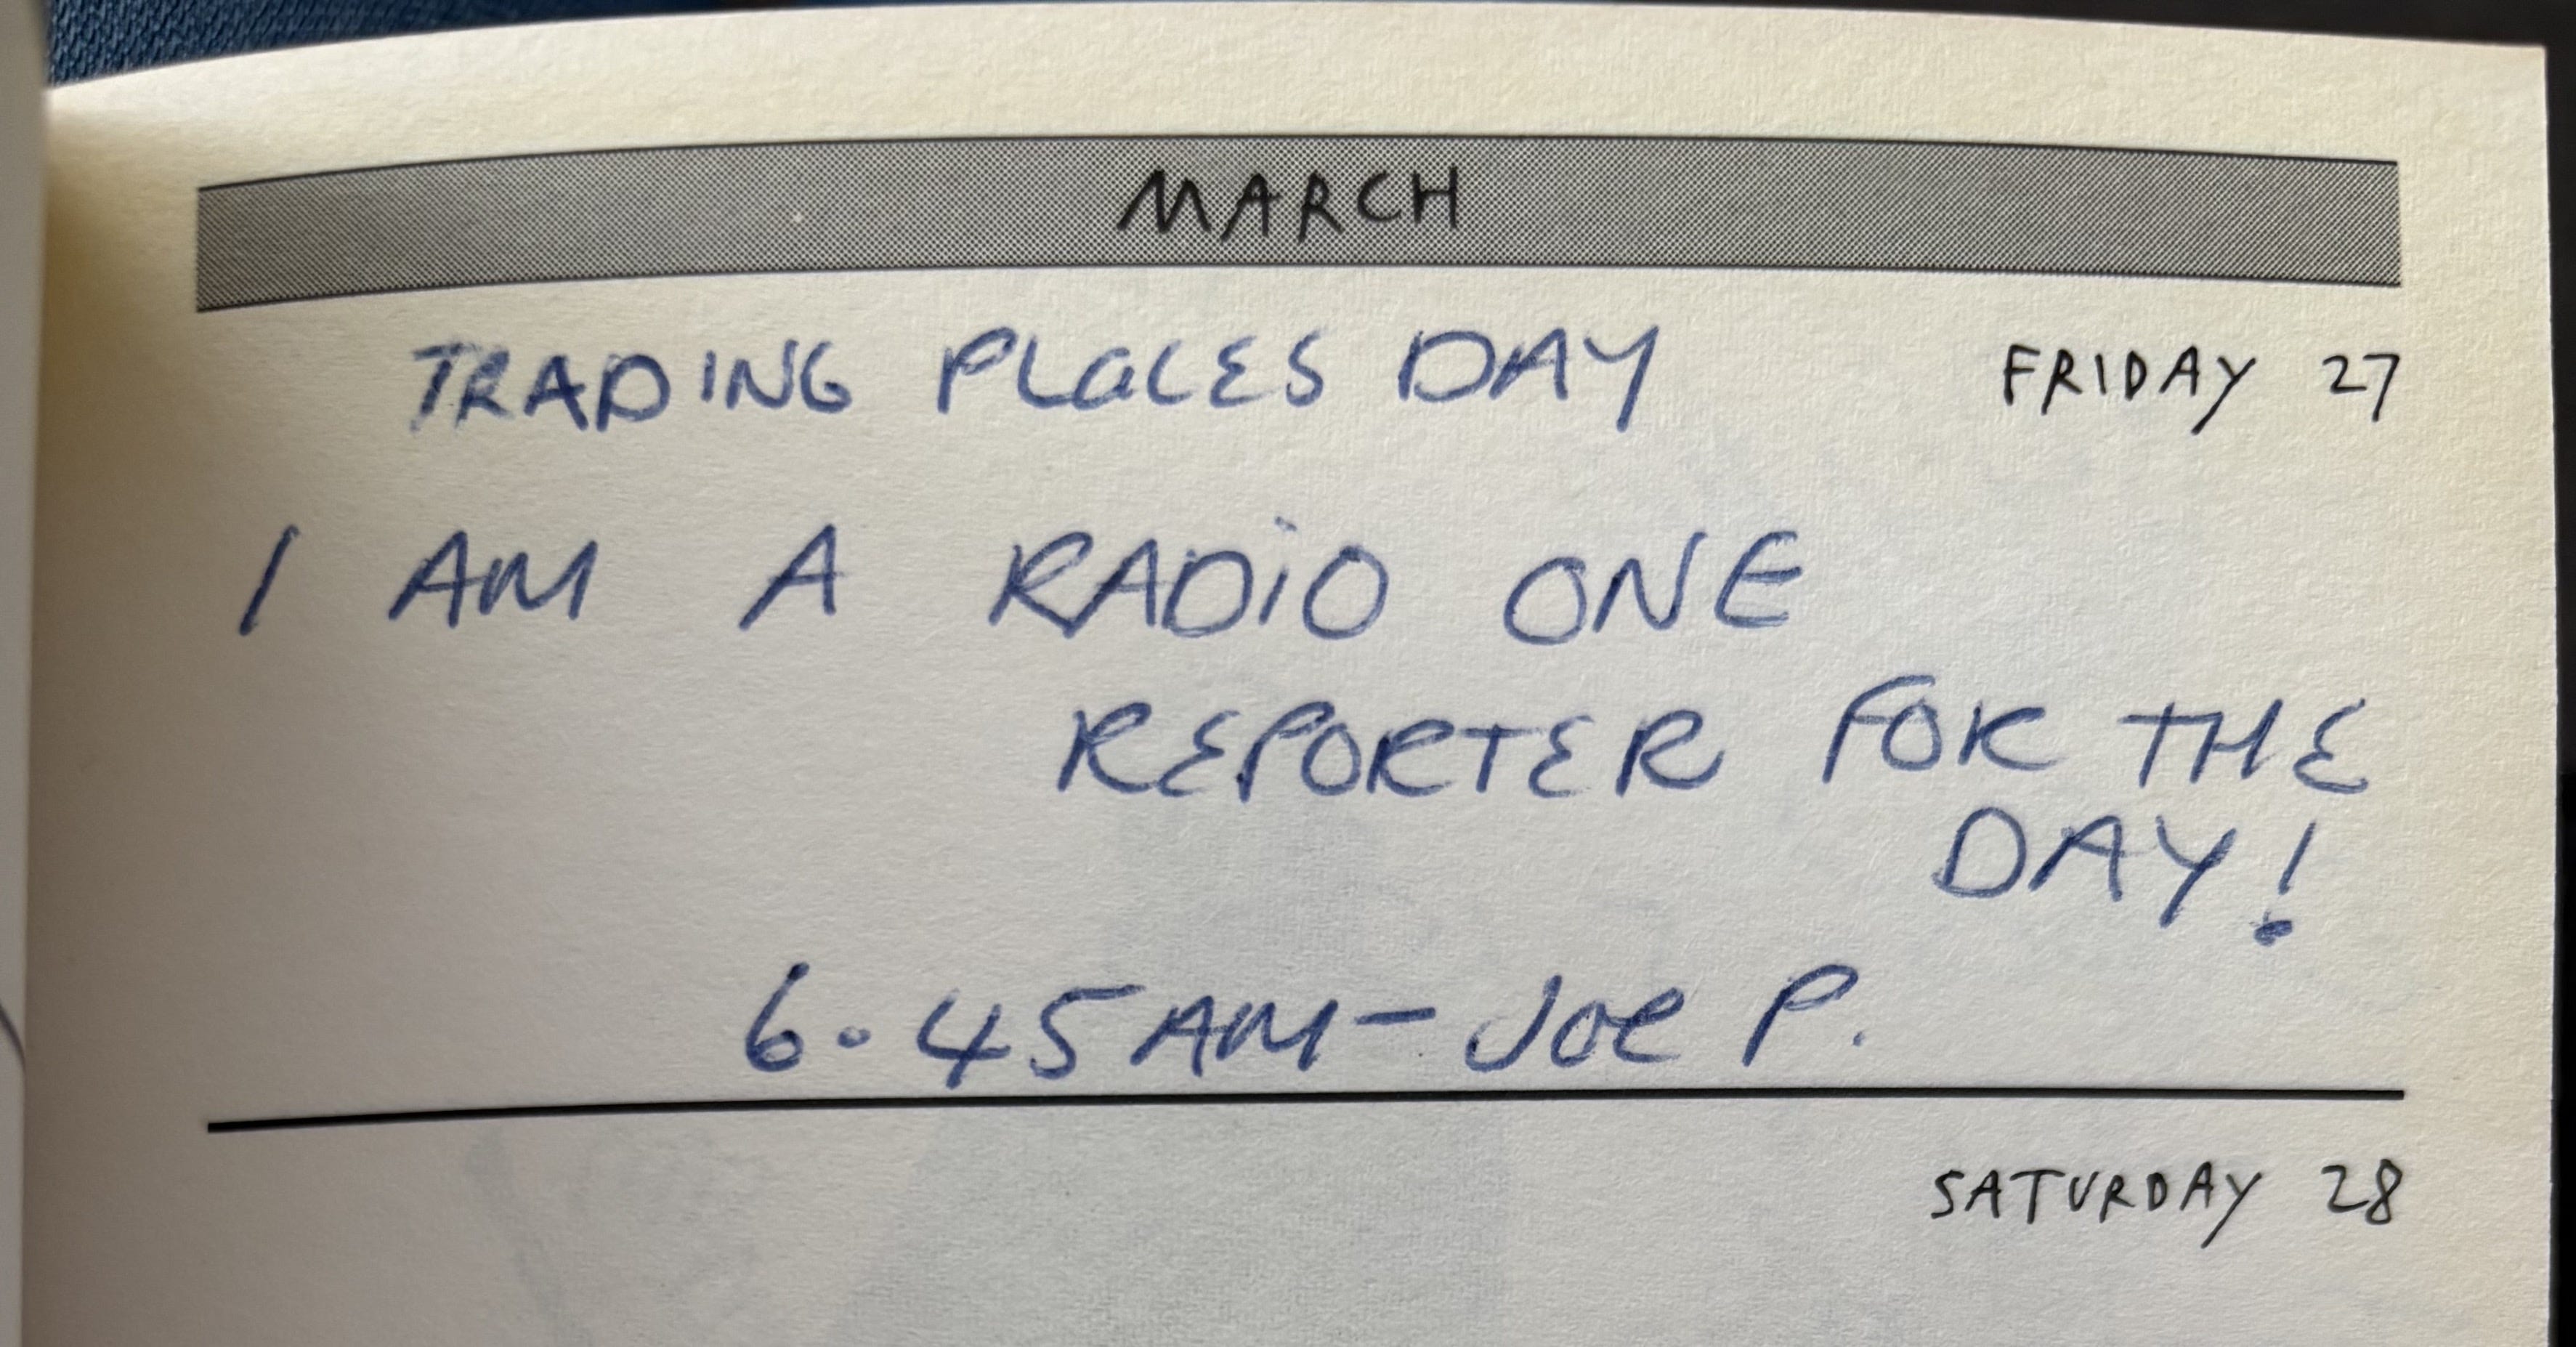 MARCH
TRADING PLaCES DAY FRIDAY 27
I AM A RADiO ONE
REPORTER FOR THE
DAY!
6.45AM- Joe P.
SATURDAY 28